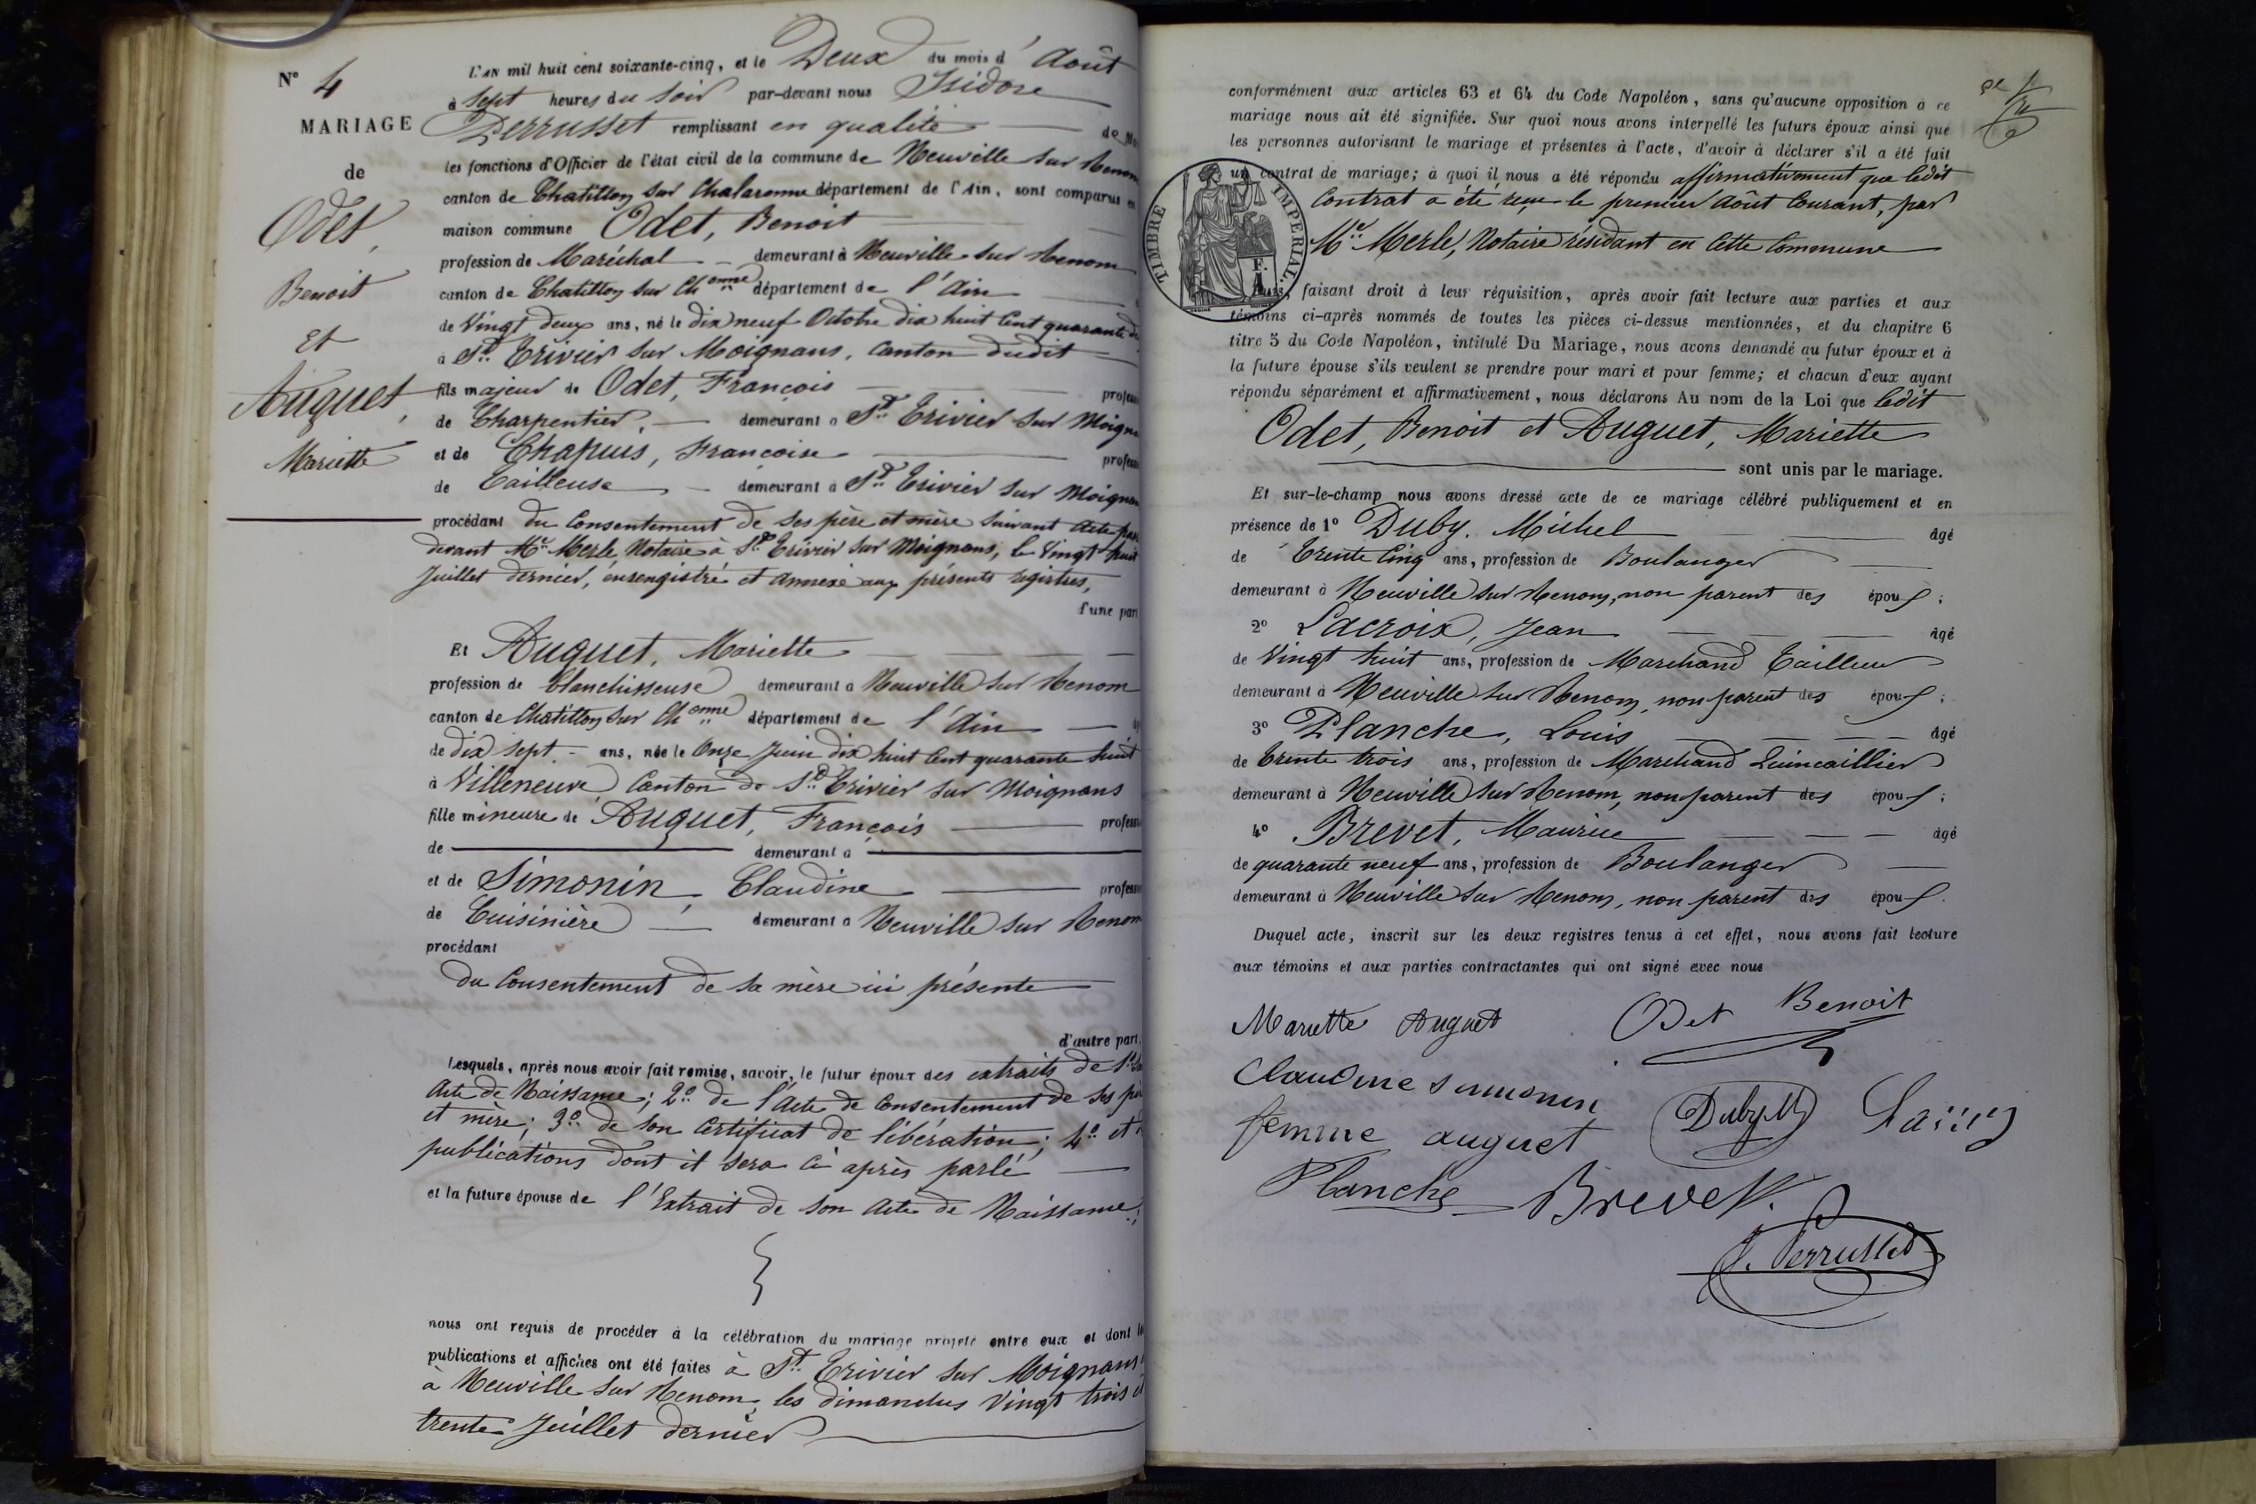 N° 4
MARIAGE
de
Odet,
Benoit
et
Auguet,
Mariette
L'AN mil huit cent soixante-cinq, et le Deux du mois d'Août
à Sept heures du soir par-devant nous Isidore
Perrusset remplissant en qualité de
les fonctions d'Officier de l'état civil de la commune de Neuville sur Renom
canton de Chatillon sur Chalaronne département de l'Ain, sont comparus en
maison commune Odet, Benoit
profession de Maréchal demeurant à Neuville sur Renom
canton de Chatillon sur Ch onne département de l'Ain
de Vingt deux ans, né le dix neuf Octobre dix huit cent quarante
à St. Trivier sur Moignans, canton dudit
fils majeur de Odet, François
de Charpentier, demeurant à St Trivier sur Moigna
et de Chapuis, Francoise
de Tailleuse demeurant à St Trivier sur Moignan
procédant du Consentement de ses père et mère suivant acte
devant Me Merle Notaire à St Trivier sur Moignans, le Vingt huit
Juillet dernier, enregistré et annexé aux présents registres,
d'une part
Et Auguet, Mariette
profession de blanchisseuse demeurant à Neuville sur Renom
canton de Chatillon sur Ch onne département de l'Ain
de dix sept ans, née le Onze Juin dix huit cent quarante huit
à Villeneuve Canton de St Trivier sur Moignans
fille mineure de Auguet, François
de demeurant à
et de Simonin, Claudine
de Cuisinière demeurant à Neuville sur Renom
procédant
du Consentement de sa mère ici présente
d'autre part.
Lesquels, après nous avoir fait remise, savoir, le futur époux des extraits de 1°
Acte de Naissance; 2° de l'Acte de Consentement de ses
et mère; 3° de son Certificat de libération; 4° et
publications dont il sera ci après parlé
et la future épouse de l'Extrait de son acte de Naissance;
nous ont requis de procéder à la célébration du mariage projeté entre eux et dont
publications et affiches ont été faites à St. Trivier sur Moignans
à Neuville sur Renom, les dimanches Vingt trois et
trente Juillet dernier
conformément aux articles 63 et 64 du Code Napoléon, sans qu'aucune opposition à ce
mariage nous ait été signifiée. Sur quoi nous avons interpellé les futurs époux ainsi que
les personnes autorisant le mariage et présentes à l'acte, d'avoir à déclarer s'il a été fait
un contrat de mariage; à quoi il nous a été répondu affirmativement que ledit
Contrat a été reçu le premier Août Courant, par
Me Merle, Notaire résidant en cette Commune
TIMBRE IMPÉRIAL.
faisant droit à leur réquisition, après avoir fait lecture aux parties et aux
témoins ci-après nommés de toutes les pièces ci-dessus mentionnées, et du chapitre 6
titre 5 du Code Napoléon, intitulé Du Mariage, nous avons demandé au futur époux et à
la future épouse s'ils veulent se prendre pour mari et pour femme; et chacun d'eux ayant
répondu séparément et affirmativement, nous déclarons Au nom de la Loi que ledit
Odet, Benoit et Auguet, Mariette
sont unis par le mariage.
Et sur-le-champ nous avons dressé acte de ce mariage célébré publiquement et en
présence de 1° Duby, Michel âgé
de Trente Cinq ans, profession de Boulanger
demeurant à Neuville sur Renom, non parent des époux;
2° Lacroix, Jean âgé
de Vingt huit ans, profession de Marchand Tailleur
demeurant à Neuville sur Renom, non parent des époux;
3° Planche, Louis âgé
de Trente trois ans, profession de Marchand Quincaillier
demeurant à Neuville sur Renom, non parent des époux;
4° Brevet, Maurice âgé
de quarante neuf ans, profession de Boulanger
demeurant à Neuville sur Renom, non parent des époux.
Duquel acte, inscrit sur les deux registres tenus à cet effet, nous avons fait lecture
aux témoins et aux parties contractantes qui ont signé avec nous
Mariette Auguet Odet Benoit
Claudine Simonin
femme auguet Duby M
Planche Brevet
J. Perrusset